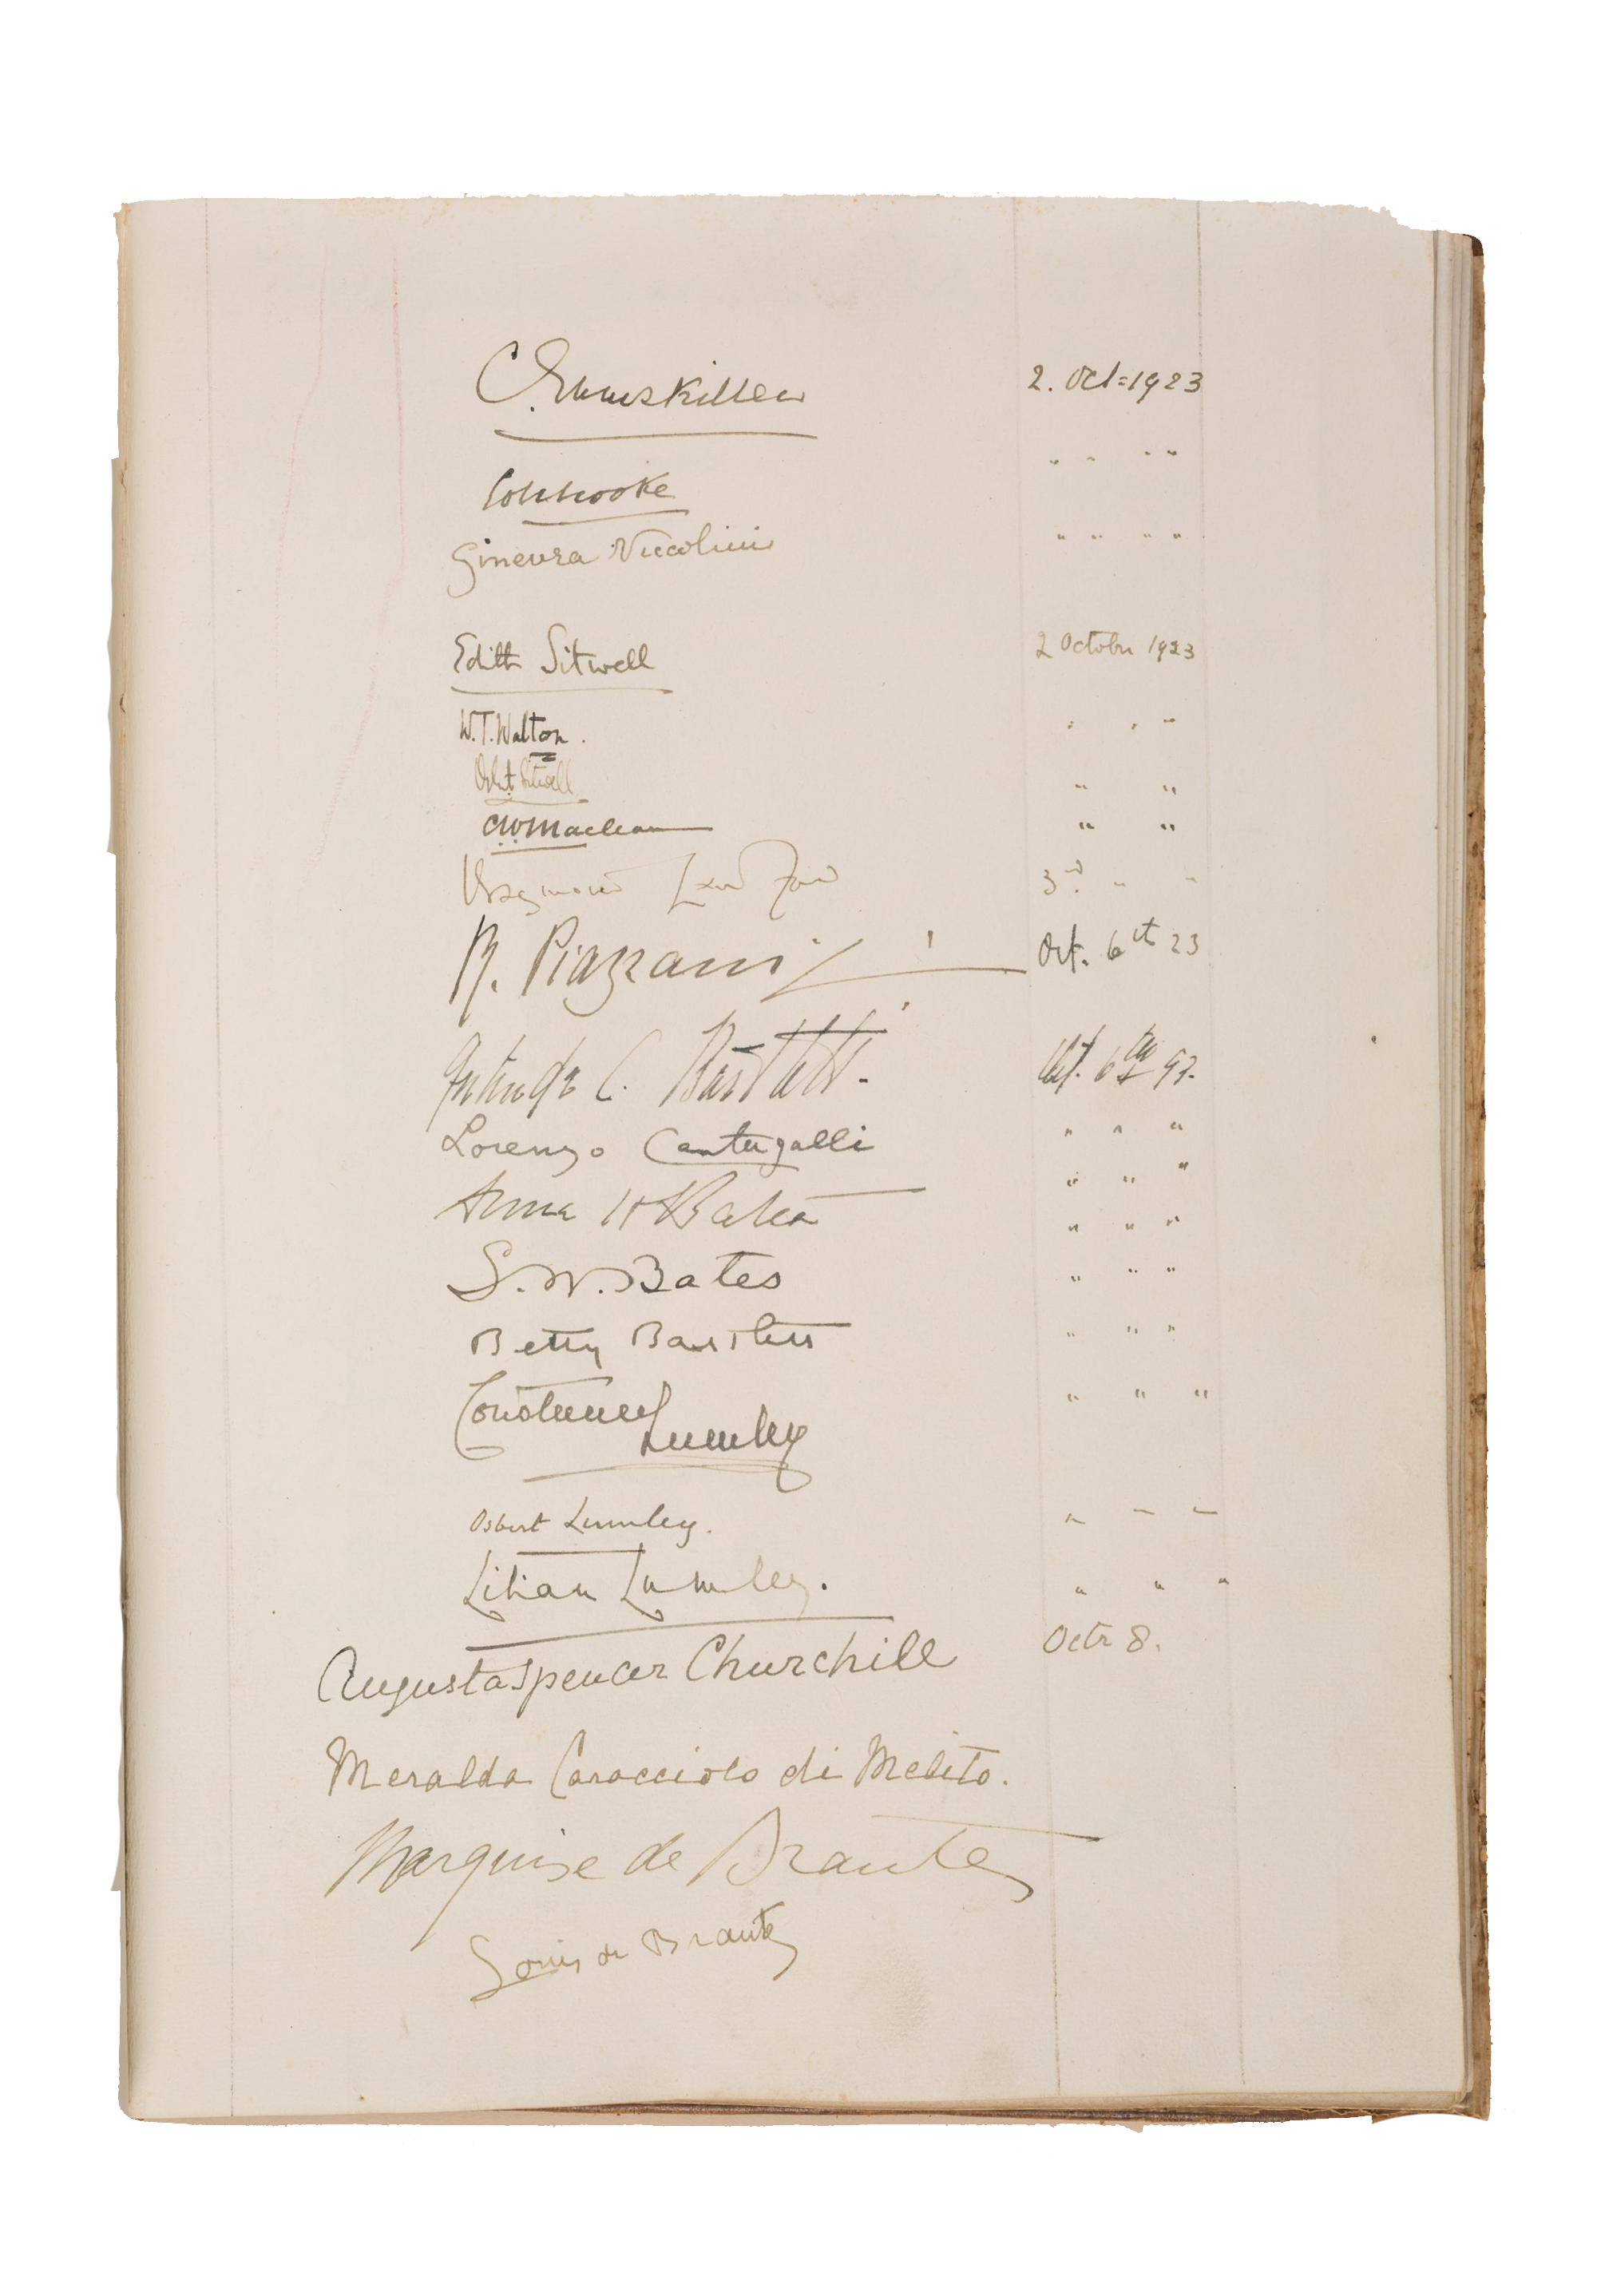 C. Enniskillen 2. Oct = 1923
Colbrooke " " " "
Ginevra Niccolini " " " "
Edith Sitwell 2 October 1923
W.T. Walton. " " "
Osbert Sitwell " "
C.W. Maclean " "
3rd " "
R. Piazzani Oct. 6th 23
C. Bartlett. Oct. 6th 23.
Lorenzo Cantagalli " " "
Anna H Bates " " "
S. W. Bates " " "
Betty Bartlett " " "
Constance " " "
Lumley
Osbert Lumley. " " "
Lilian Lumley. " " "
Augusta Spencer Churchill Octr 8.
Meralda Caracciolo di Melito.
Marquise de Brantes
Louis de Brantes